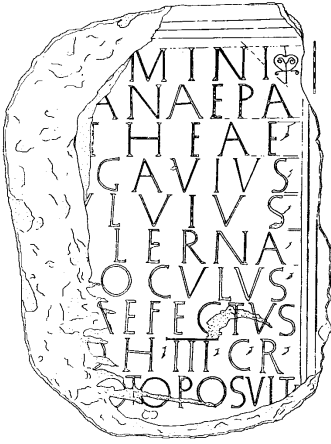 MINI
ANAEPA
THEAE
GAVIVS
VLVIVS
LERNA
OCVLVS
EFECTVS
H·III·C·R·
OTOPOSVIT